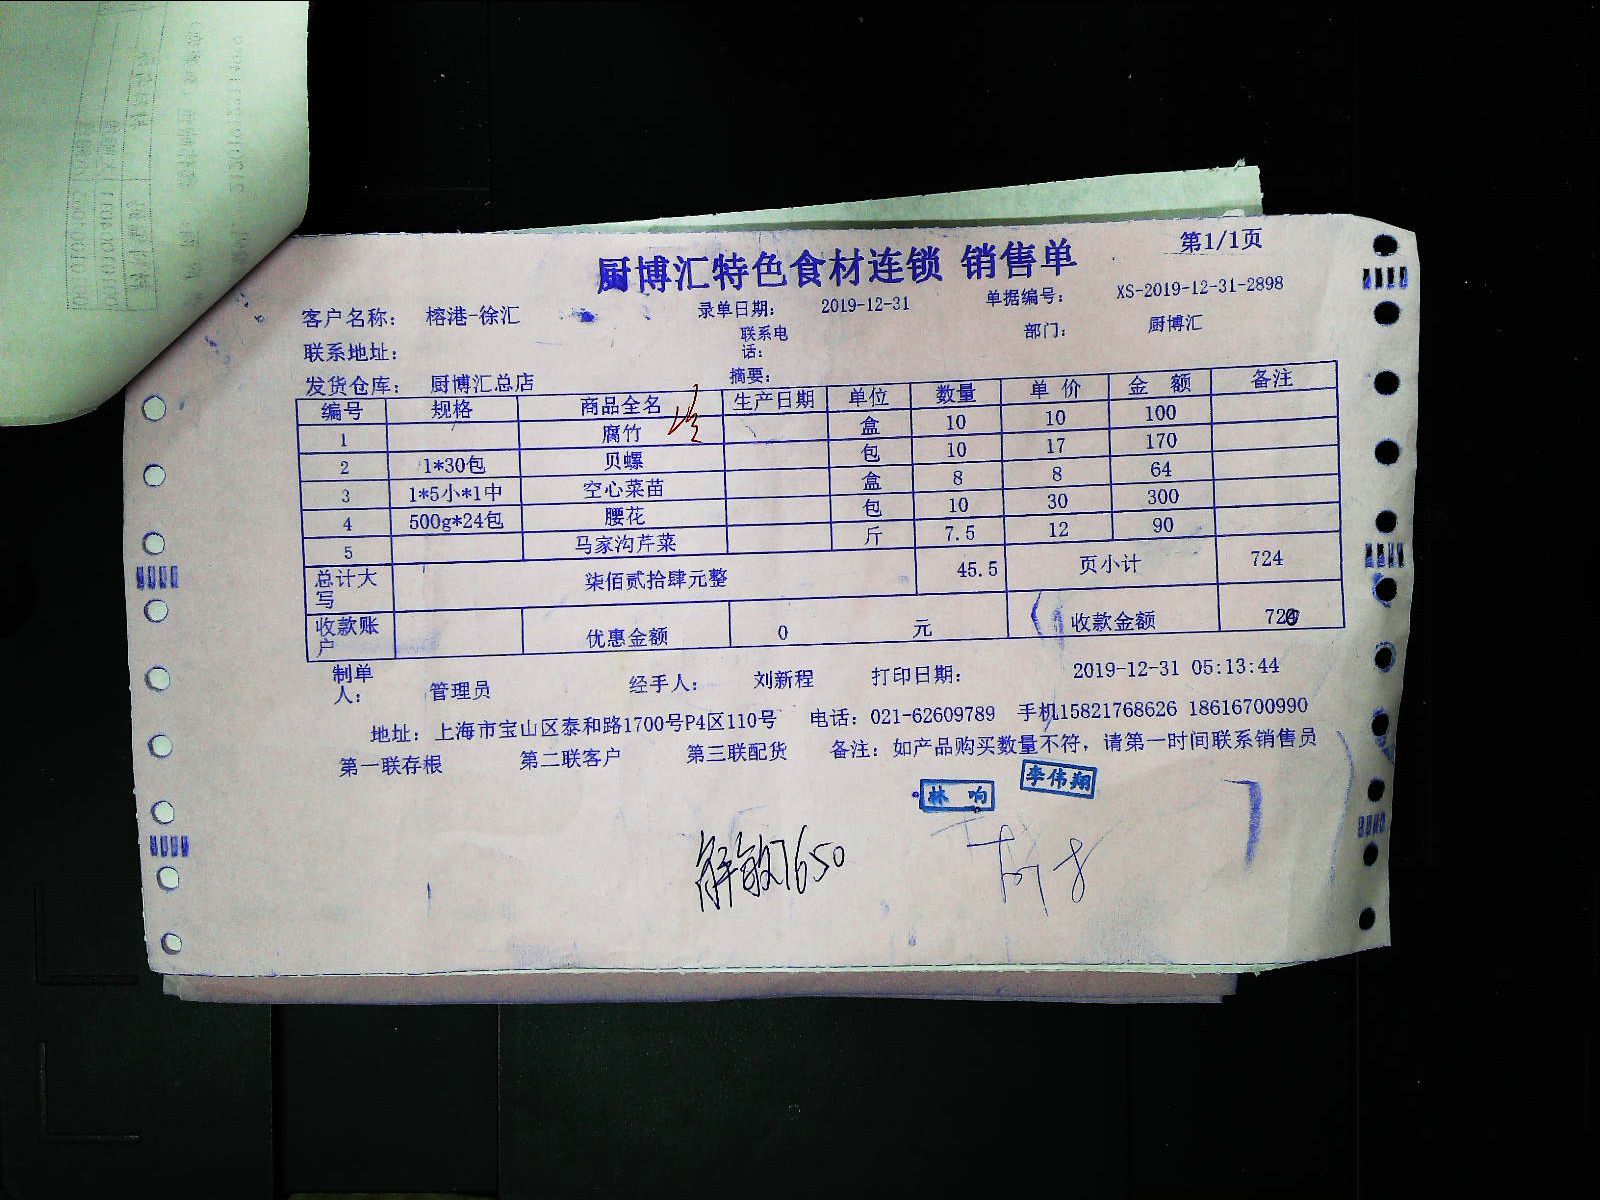 厨博汇特色食材连锁 销售单 第1/1页
客户名称： 榕港-徐汇 录单日期： 2019-12-31 单据编号： XS-2019-12-31-2898
联系地址： 联系电话： 部门： 厨博汇
发货仓库： 厨博汇总店 摘要：
编号 规格 商品全名 生产日期 单位 数量 单 价 金 额 备注
1 腐竹 盒 10 10 100
2 1*30包 贝螺 包 10 17 170
3 1*5小*1中 空心菜苗 盒 8 8 64
4 500g*24包 腰花 包 10 30 300
5 马家沟芹菜 斤 7.5 12 90
总计大写 柒佰贰拾肆元整 45.5 页小计 724
收款账户 优惠金额 0 元 收款金额 720
制单人： 管理员 经手人： 刘新程 打印日期： 2019-12-31 05:13:44
地址：上海市宝山区泰和路1700号P4区110号 电话：021-62609789 手机15821768626 18616700990
第一联存根 第二联客户 第三联配货 备注：如产品购买数量不符，请第一时间联系销售员
林 响 李伟翔
解敏1650